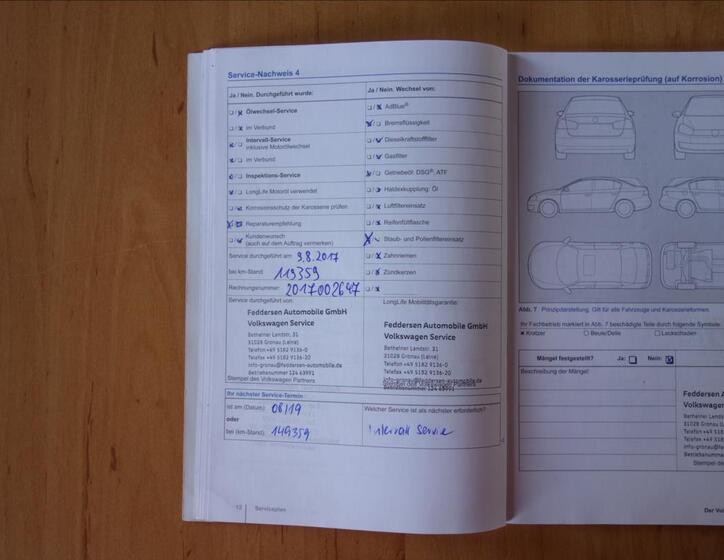 Service-Nachweis 4
Ja / Nein. Durchgeführt wurde:
Ölwechsel-Service
im Verbund
Intervall-Service
inklusive Motorölwechsel
im Verbund
Inspektions-Service
LongLife Motoröl verwendet
Korrosionsschutz der Karosserie prüfen
Reparaturempfehlung
Kundenwunsch
(auch auf dem Auftrag vermerken)
Service durchgeführt am: 9.8.2017
bei km-Stand: 119359
Rechnungsnummer: 2017002647
Service durchgeführt von:
Feddersen Automobile GmbH
Volkswagen Service
Betheiner Landstr. 31
31028 Gronau (Leine)
Telefon +49 5182 9136-0
Telefax +49 5182 9136-20
info-gronau@feddersen-automobile.de
Betriebsnummer 124 63991
Stempel des Volkswagen Partners
Ja / Nein. Wechsel von:
AdBlue®
Bremsflüssigkeit
Dieselkraftstofffilter
Gasfilter
Getriebeöl: DSG®, ATF
Haldexkupplung: Öl
Luftfiltereinsatz
Reifenfüllflasche
Staub- und Pollenfiltereinsatz
Zahnriemen
Zündkerzen
LongLife Mobilitätsgarantie:
Feddersen Automobile GmbH
Volkswagen Service
Betheiner Landstr. 31
31028 Gronau (Leine)
Telefon +49 5182 9136-0
Telefax +49 5182 9136-20
info-gronau@feddersen-automobile.de
Betriebsnummer 124 63991
Stempel des Volkswagen Partners
Ihr nächster Service-Termin
ist am (Datum): 08/19
oder
bei (km-Stand): 149359
Welcher Service ist als nächster erforderlich?
Intervall Service
Serviceplan
Dokumentation der Karosserieprüfung (auf Korrosion)
Abb. 7 Prinzipdarstellung. Gilt für alle Fahrzeuge und Karosserieformen.
Ihr Fachbetrieb markiert in Abb. 7 beschädigte Teile durch folgende Symbole:
Kratzer Beule/Delle Lackschaden
Mängel festgestellt? Ja: Nein:
Beschreibung der Mängel:
Feddersen A
Volkswagen
Betheiner Landstr.
31028 Gronau (Le
Telefon +49 51
Telefax +49 5
info-gronau@fe
Betriebsnumme
Stempel des